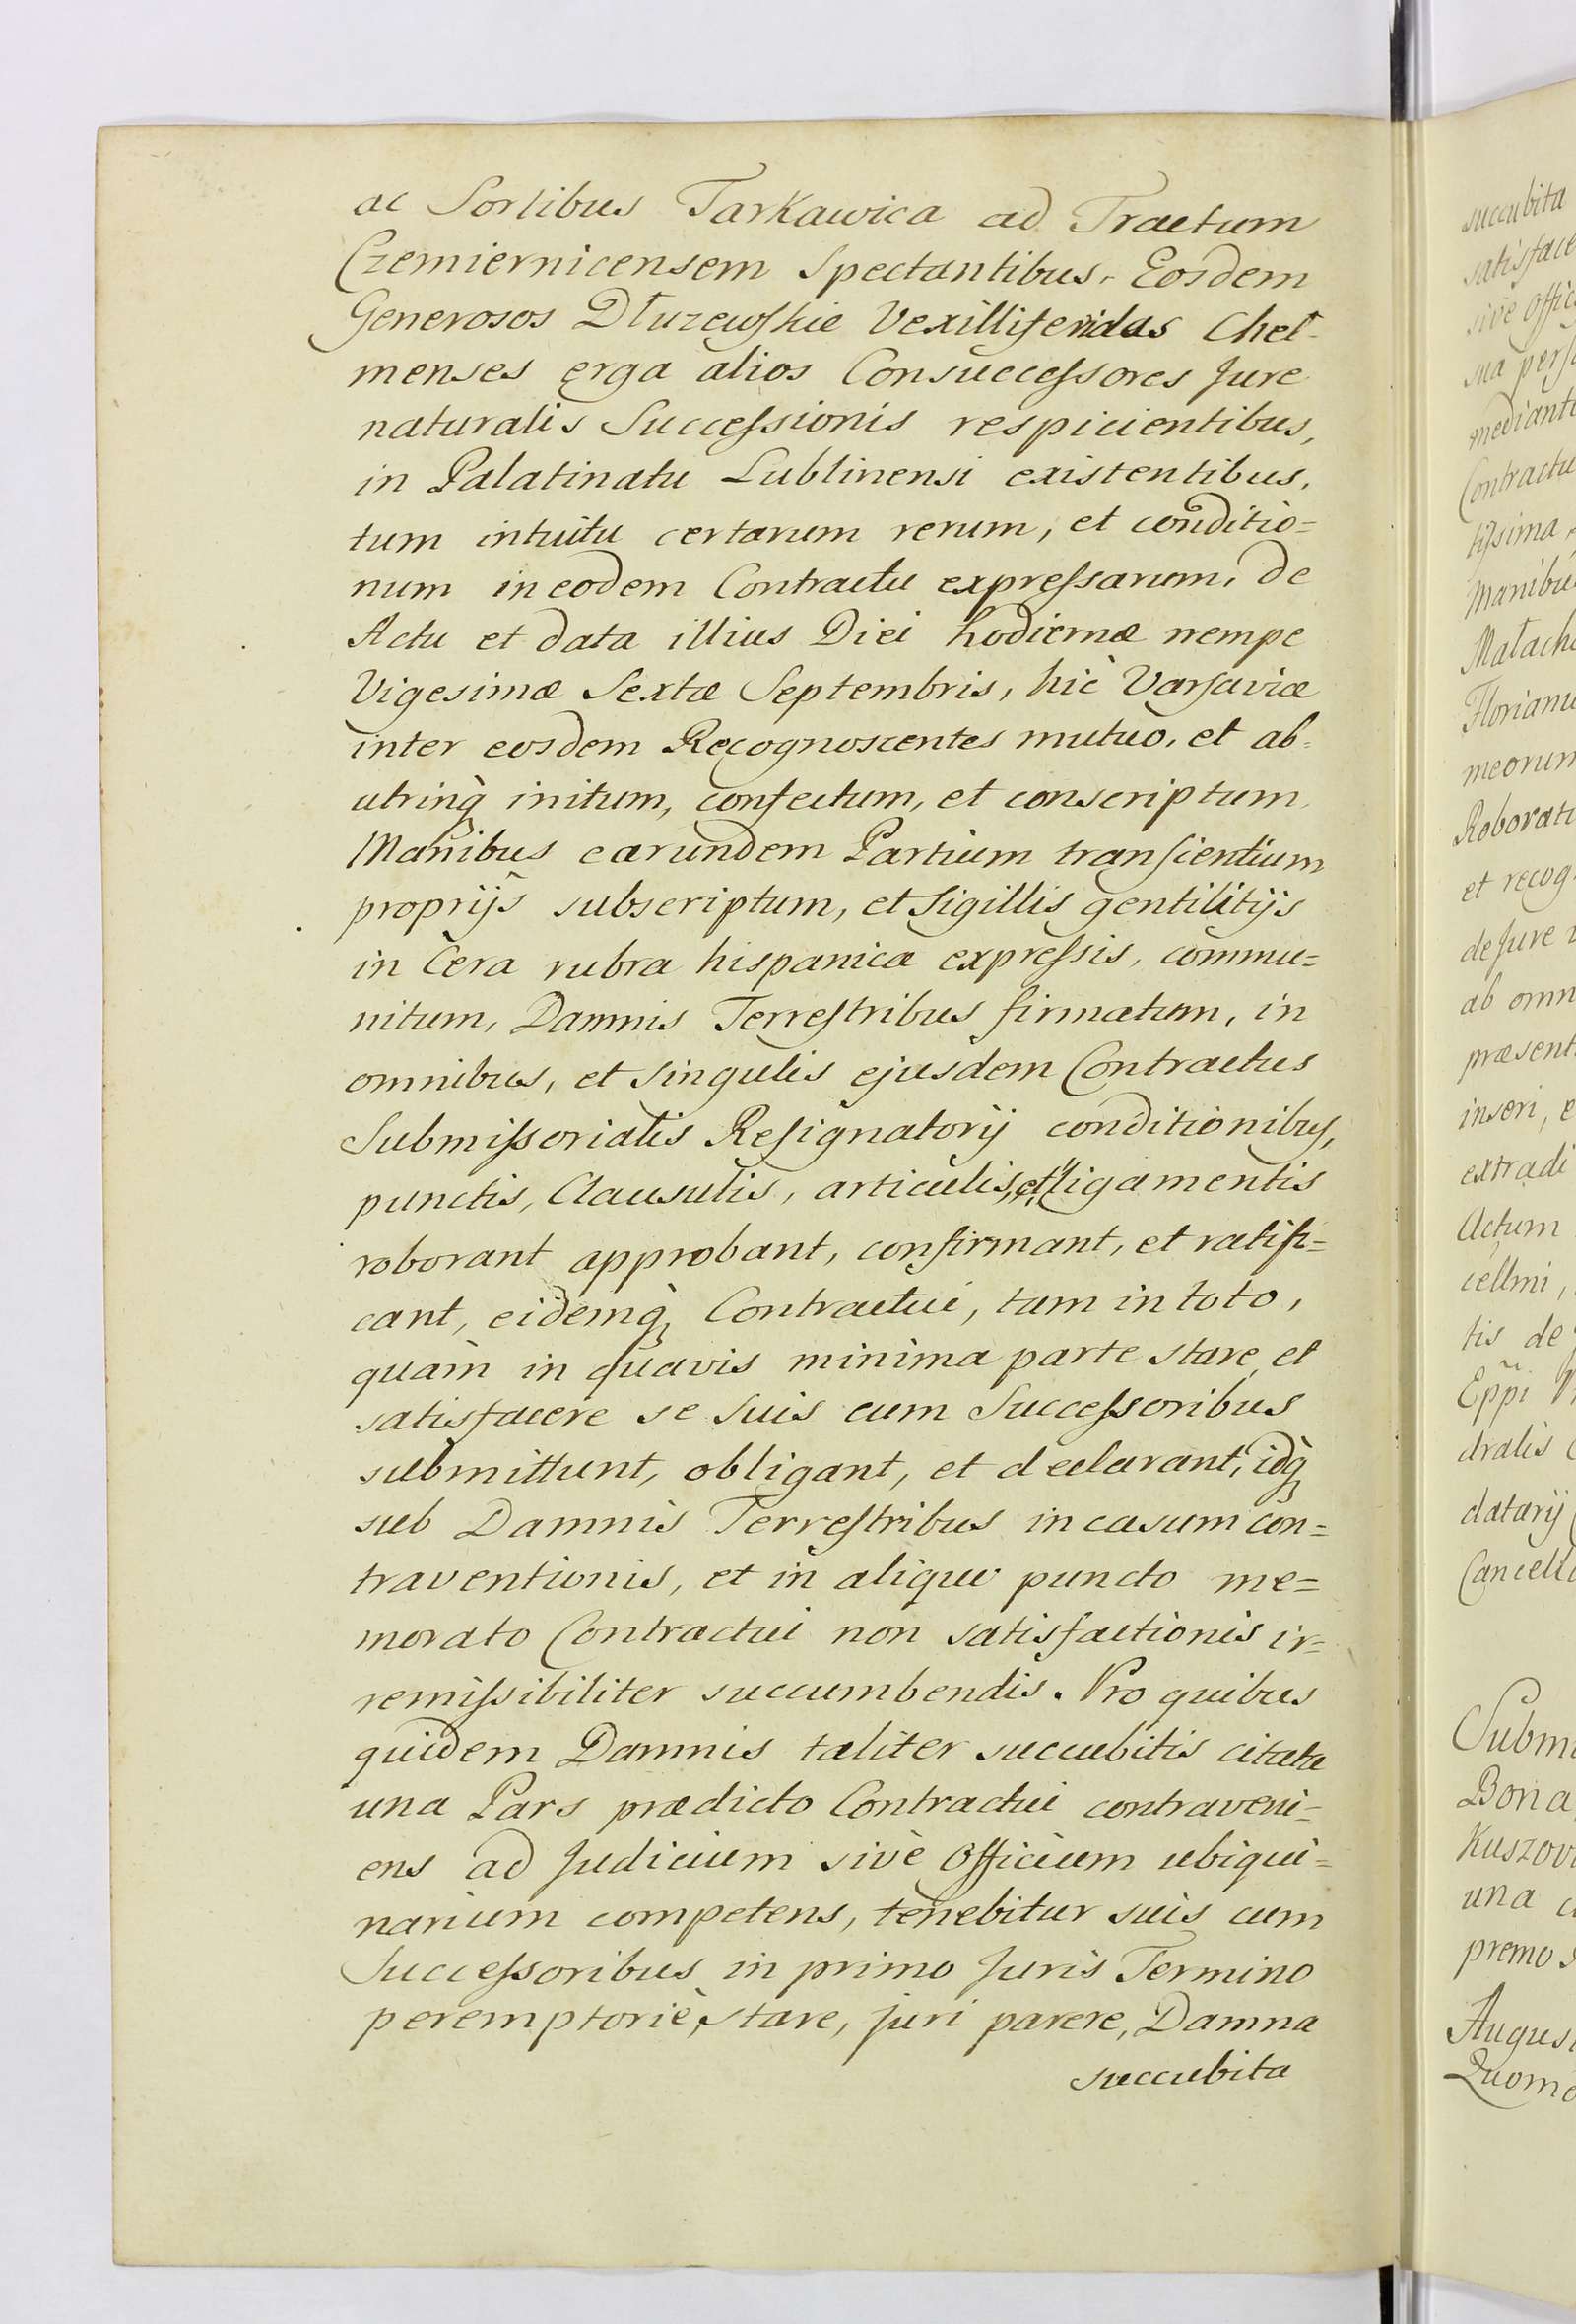 ac Sortibus Tarkawica ad Tractum
Czemiernicensem Spectantibus, Eosdem
Generosos Dłuzewſkie Vexilliferidas Cheł-
menses erga alios Consucceſsores Jure
naturalis Succeſsionis respicientibus,
in Palatinatu Lublinensi existentibus,
tum intuitu certarum rerum, et conditio=
num in eodem Contractu expreſsarum, de
Actu et data illius Diei hodiernæ nempe
Vigesimæ Sextæ Septembris, hic Varſaviæ
inter eosdem Recognoscentes mutuo, et ab=
utrinq̀ initum, confectum, et conscriptum,
Manibus earundem Partium tranſientium
proprijs subscriptum, et Sigillis gentilitijs
in Cera rubra hispanica expreſsis, commu=
nitum, Damnis Terreſtribus firmatum, in
omnibus, et Singulis ejusdem Contractus
Submiſsorialis Reſignatorij conditionibus,
punctis, Clausulis, articulis, et ligamentis
roborant approbant, confirmant, et ratifi=
cant, eidemq̀ Contractui, tam in toto,
quam in quavis minima parte stare et
satisfacere se suis cum Succeſsoribus
submittunt, obligant, et declarant, idq̀
sub Damnis Terreſtribus in casum con=
traventionis, et in aliquo puncto me=
morato Contractui non satisfactionis ir=
remiſsibiliter succumbendis. Pro quibus
quidem Damnis taliter succubitis citata
una Pars prædicto Contractui contraveni=
ens ad Judicium sivè Officium ubiqui=
narium competens, tenebitur suis cum
Succeſsoribus in primo Juris Termino
peremptoriè, stare, juri parere, Damna
succubita
succubita
satisface
sive offic
sua perſo
mediant
Contractu
tiſsima
Manibu
Małach
Florianu
meorum
Roborat
et recog
de Jure
ab omn
præsent
inseri, e
extradi
Actum
cellmi,
tis de
Epp̃i
dralis
datarij
Cancell
Submi
Bona
Kuszov
una c
premo s
August
Quomo